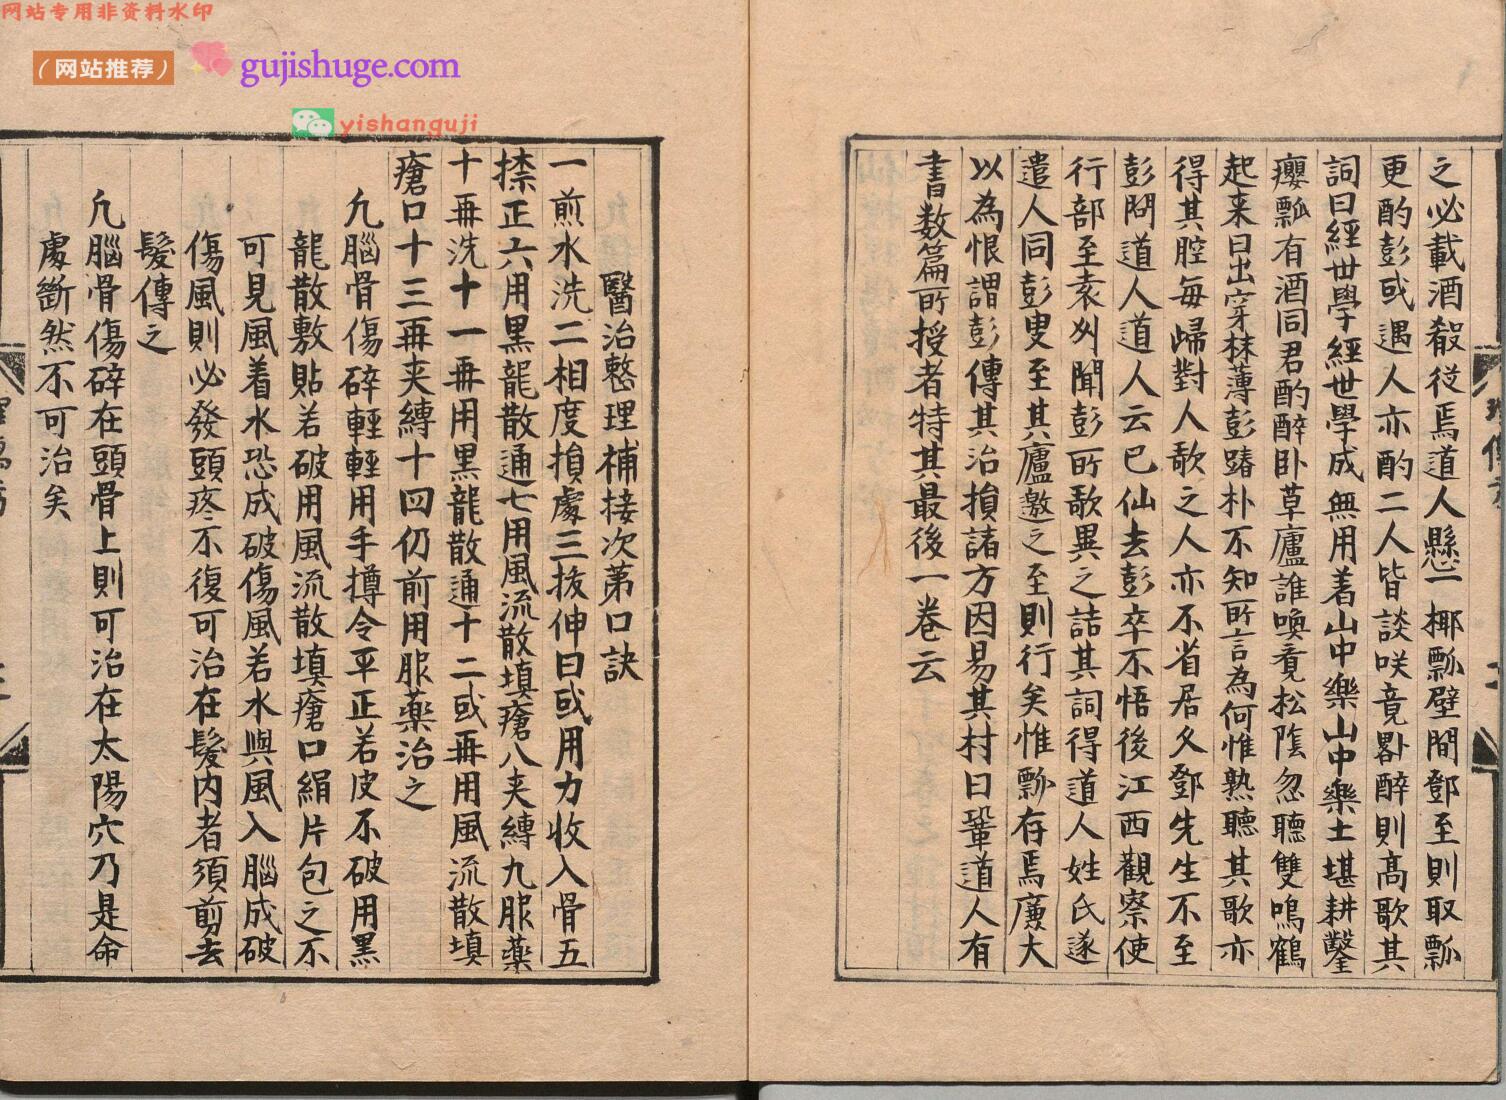 网站专用非资料水印
（网站推荐）
gujishuge.com
yishanguji
之必載酒殽從焉道人懸一椰瓢壁間鄧至則取瓢
更酌彭或遇人亦酌二人皆談咲竟畧醉則高歌其
詞曰經世學經世學成無用着山中樂山中樂土堪耕鑿
癭瓢有酒同君酌醉卧草廬誰喚竟松陰忽聽雙鳴鶴
起来日出穿林薄彭蹖朴不知所言為何惟熟聽其歌亦
得其腔每歸對人歌之人亦不省居久鄧先生不至
彭問道人道人云已仙去彭卒不悟後江西觀察使
行部至袁州聞彭所歌異之詰其詞得道人姓氏遂
遣人同彭叟至其廬邀之至則行矣惟瓢存焉廉大
以為恨謂彭傳其治損諸方因易其村曰鞏道人有
書数篇所授者特其最後一卷云
醫治整理補接次第口訣
一煎水洗二相度損處三拔伸曰或用力收入骨五
捺正六用黑龍散通七用風流散填瘡八夹縛九服藥
十再洗十一再用黑龍散通十二或再用風流散填
瘡口十三再夹縛十四仍前用服藥治之
凢腦骨傷碎輕輕用手撙令平正若皮不破用黑
龍散敷貼若破用風流散填瘡口絹片包之不
可見風着水恐成破傷風若水與風入腦成破
傷風則必發頭疼不復可治在髮内者須剪去
髮傅之
凢腦骨傷碎在頭骨上則可治在太陽穴乃是命
處斷然不可治矣